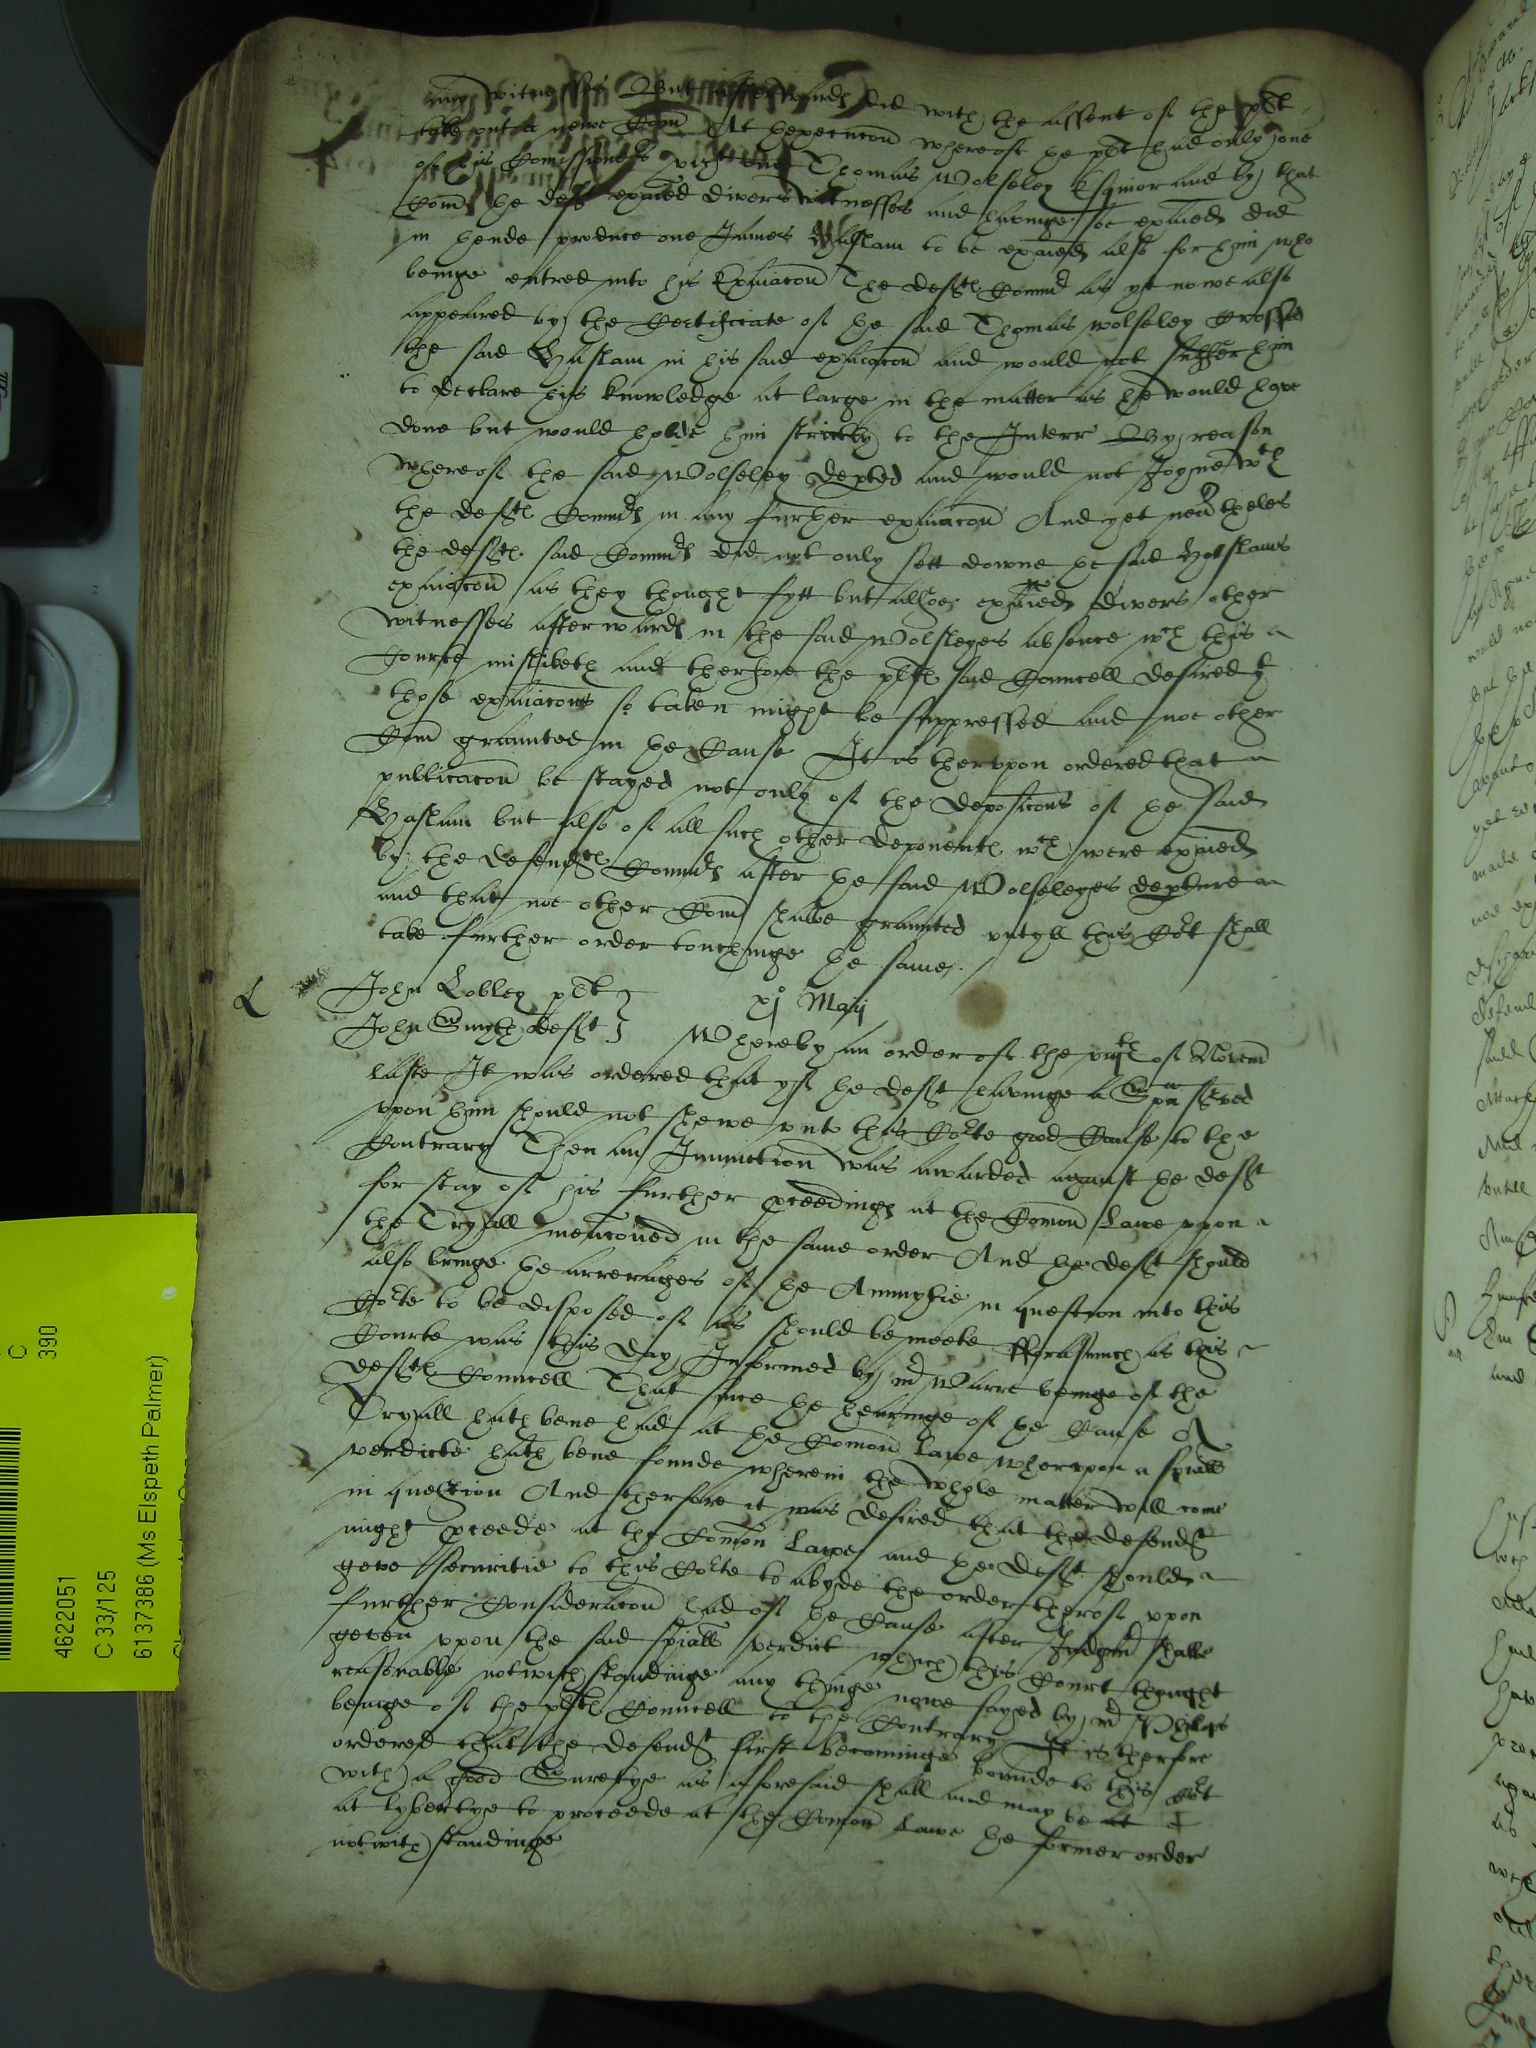 any witnesses But afterwards did with the assent of the plt
take out a newe Com At thexecucon whereof the plt had only one
of his Comissioners vizt one Thomas Wolseley Esquior and by that
Com the deft exaied divers witnesses and havinge soe exaied did
in thende produce one James Haslam to be exaied also for him who
beinge entred into his Exaiacon The deftes Commrs as yt nowe also
appeared by the Certificate of the said Thomas Wolseley Crossed
the said Haslam in his said exaiacon and would not suffer him
to declare his knowledge at large in the matter as he would have
done but would holde him stricktly to the Interr By reason
whereof the said Wolseley depted and would not Joyne wth
the deftes Commrs in any further exaiacon And yet nevertheles
the deftes said Commrs did not only sett downe the said Haslams
exaiacon as they thought fytt but allsoe exaied divers other
witnesses afterwards in the said Wolsleyes absence wch this
Courte misliketh and therfore the pltes said Councell desired yt
those exaiacons so taken might be suppressed and noe other
Com graunted in the Cause It is therupon ordered that
publicacon be stayed not only of the deposicons of the said
Haslam but also of all such other deponentes wch were exaied
by the defendtes Commrs after the said Wolseleyes depture
and that noe other Com shalbe graunted untyll this Cort shall
take further order touchinge the same
L
John Lobley plt
xjo Maij
John Smyth deft
Whereby an order of the of Novem
laste It was ordered that yf the deft havinge a Spa served
vpon him should not shewe vnto this Corte good Cause to the
Contrary Then an Iniunction was awarded against the deft
for stay of his further pceedinges at the Comon Lawe vpon
the Tryall mencioned in the same order And the deft should
also bringe the arrerages of the Annuytie in question into this
Corte to be disposed of as should be meete fforasmuch as this
Courte was this day Informed by mr Warre beinge of the
deftes Councell That since the hearinge of the Cause A
Tryall hath bene had at the Comon Lawe wherupon a spiall
verdicte hath bene founde wherein the whole matter will come
in question And therfore it was desired that the defendt
might pceede at the Comon Lawe and the deft should
geve securitie to this Corte to abyde the order therof vpon
further Consideracon had of the Cause after Judgmt shalbe
geven vpon the said spiall verdict which this Court thought
reasonable notwithstandinge any thinge nowe sayed by mr Philips
beinge of the pltes Councell to the Contrary It is therfore
ordered that the defendt first becominge bounde to this Cort
with a good Suretye as aforesaid shall and may be at
at lybertye to proceede at the Comon Lawe the former order
notwithstandinge
C
390
4622051
C 33/125
6137386 (Ms Elspeth Palmer)